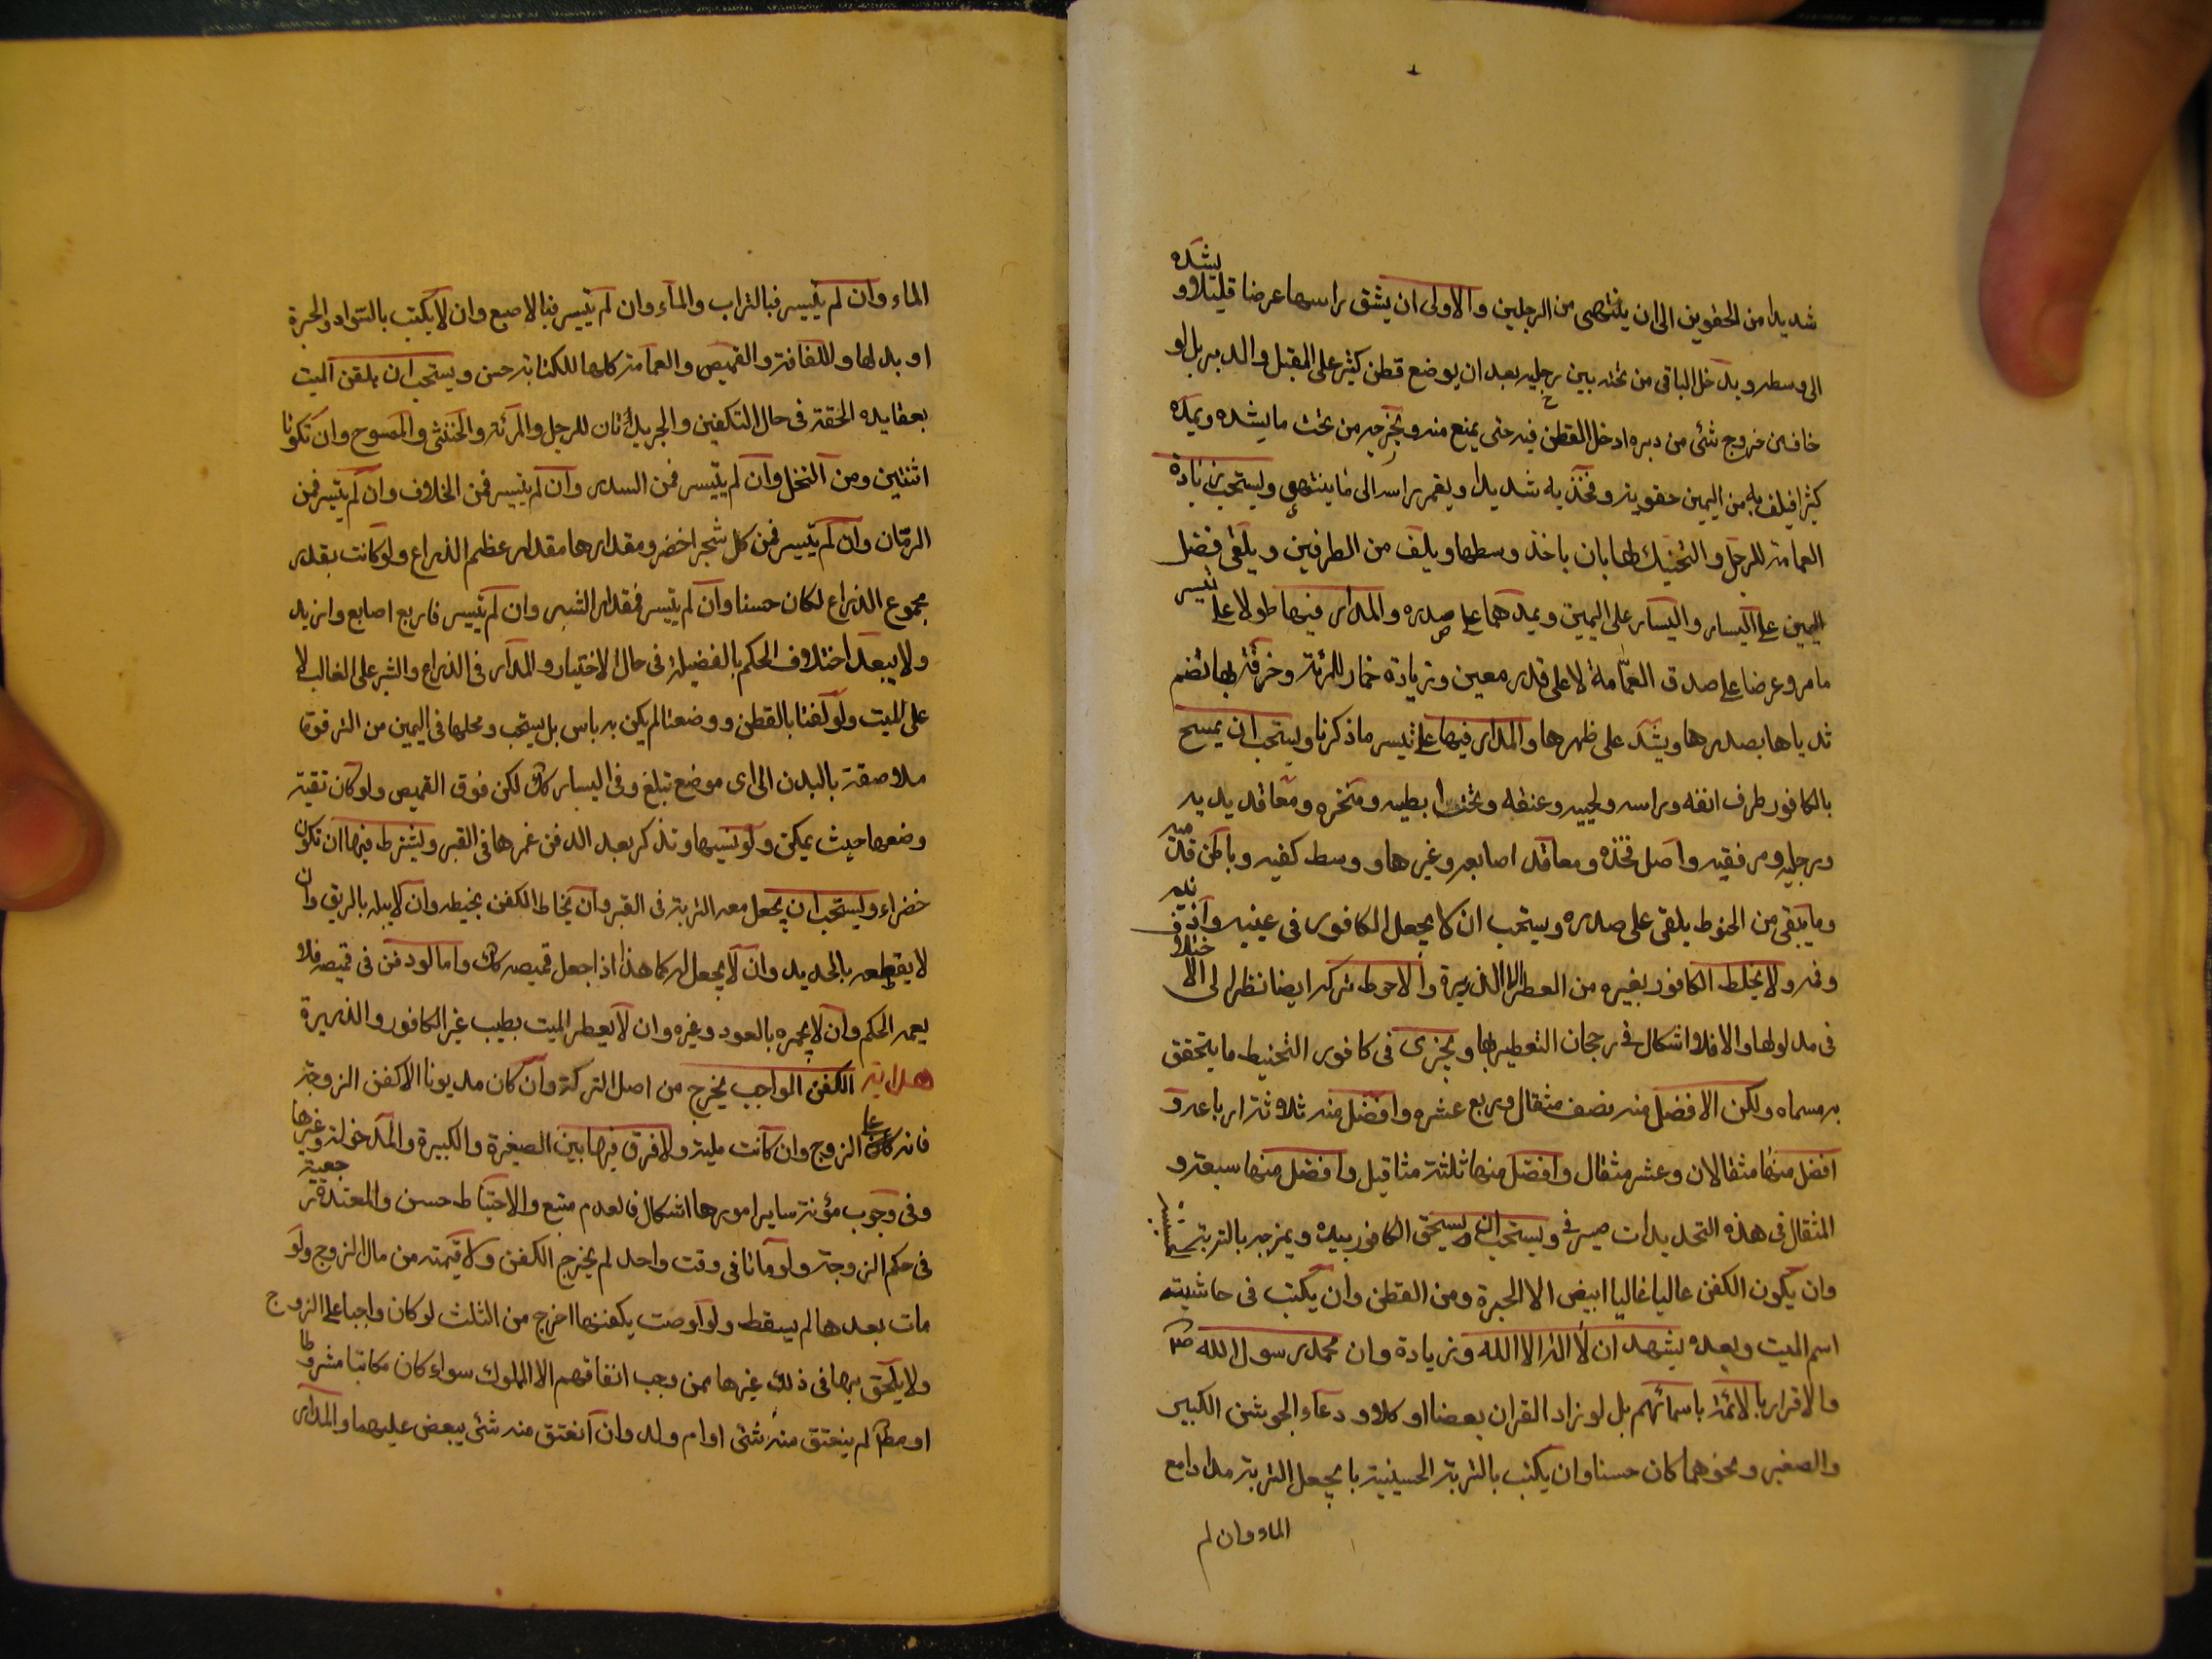 شديدا من الحقوين الى ان ينتهى من الرجلين والاولى ان يشق راسها عرضا قليلا و يشده
الى وسطه ويدخل الباقى من تحته بين رجليه بعد ان يوضع قطن كثير على المقبل والدبر بل لو
خاف من خروج شئ من دبره ادخل القطن فيه حتى يمنع منه ويخرجه من تحت ما يشده ويمده
كثيرا فيلف به من اليمين حقويه وفخذيه شديدا ويغمر راسه الى ما ينتهى ويستحب زيادة
العمامة للرجل والتحنيك لها بان ياخذ وسطها ويلف من الطرفين ويلقى فضل
اليمين على اليسار واليسار على اليمين ويمدهما على صدره والمدار فيها طولا على تيسر
ما مر وعرضا على صدق العمامة لا على قدر معين وزيادة خمار للمرئة وخرقة بها تضم
ثدياها بصدرها ويشد على ظهرها والمدار فيها على تيسر ما ذكرنا ويستحب ان يمسح
بالكافور طرف انفه وراسه ولحييه وعنقه وتحت ابطيه ومنخره ومعاقد يديه
ورجليه ومرفقيه واصل فخذه ومعاقد اصابعه وغيرها ووسط كفيه وباطن قدميه
وما يبقى من الحنوط يلقى على صدره ويستحب ان لا يجعل الكافور فى عينيه واذنيه
وفمه ولا يخلط الكافور بغيره من العطر الا الذريرة والاحوط تركه ايضا نظرا الى الاختلاف
فى مدلولها والا فلا اشكال فى رجحان التعطير بها ويجزى فى كافور التحنيط ما يتحقق
به مسماه ولكن الافضل منه نصف مثقال وربع عشره وافضل منه ثلاثة ارباعه و
افضل منها مثقالان وعشر مثقال وافضل منها ثلثة مثاقيل وافضل منها سبعة و
المثقال فى هذه التحديدات صيرفى ويستحب ان يسحق الكافور بيده ويمزجه بالتربة
وان يكون الكفن عاليا غاليا ابيض الا الحبرة ومن القطن وان يكتب فى حاشيته
اسم الميت وبعده يشهد ان لا اله الا الله وزيادة وان محمد رسول الله ص
والاقرار بالائمة باسمائهم بل لو زاد القران بعضا او كلا ودعاء الجوشن الكبير
والصغير ونحوهما كان حسنا وان يكتب بالتربة الحسينية با يجعل التربة مدادا مع
الماء وان لم
الماء وان لم يتيسر فبالتراب والماء وان لم يتيسر فبالاصبع وان لا يكتب بالسواد والحبرة
او بدلها واللفافة والقميص والعمامة كلها للكتابة حسن ويستحب ان يلقن الميت
بعقايده الحقة فى حال التكفين والجريدتان للرجل والمرئة والخنثى والممسوح وان تكونا
اثنتين ومن النخل وان لم يتيسر فمن السدر وان لم يتيسر فمن الخلاف وان لم يتيسر فمن
الرمان وان لم يتيسر فمن كل شجر اخضر ومقدارها مقدار عظم الذراع ولو كانت بقدر
مجموع الذراع لكان حسنا وان لم يتيسر فمقدار الشبر وان لم يتيسر فاربع اصابع وازيد
ولا يبعد اختلاف الحكم بالفضيلة فى حال الاختيار والمدار فى الذراع والشبر على الغالب لا
على الميت ولو لفنا بالقطن ووضعنا لم يكن به باس بل يستحب ومحلها فى اليمين من الترقوة
ملاصقة بالبدن الى اى موضع تبلغ وفى اليسار كك لكن فوق القميص ولو كان تقية
وضعها حيث يمكن ولو نسيها وتذكر بعد الدفن غمرها فى القبر ويشترط فيها ان تكون
خضراء ويستحب ان يجعل معه التربة فى القبر وان يخاط الكفن بخيطه وان لا يبله بالريق وان
لا يقطعه بالحديد وان لا يجعل له كما هذا اذا جعل قميصه كك واما لو دفن فى قميصه فلا
يعمه الحكم وان لا يجمره بالعود وغيره وان لا يعطر الميت بطيب غير الكافور والذريرة
هداية الكفن الواجب يخرج من اصل التركة وان كان مديونا الا كفن الزوجة
فانه على الزوج وان كانت ملية ولا فرق فيها بين الصغيرة والكبيرة والمدخولة وغيرها
وفى وجوب مؤنة ساير امورها اشكال فالعدم متبع والاحتياط حسن والمعتدة رجعية
فى حكم الزوجة ولو ماتا فى وقت واحد لم يخرج الكفن ولا قيمته من مال الزوج ولو
مات بعدها لم يسقط ولو اوصت بكفنها اخرج من الثلث لو كان واجبا على الزوج
ولا يلحق بها فى ذلك غيرها ممن يجب انفاقهم الا المملوك سواء كان مكاتبا مشروطا
او مطلقا لم ينعتق منه شئ او ام ولد وان انعتق منه شئ يبعض عليهما والمدار